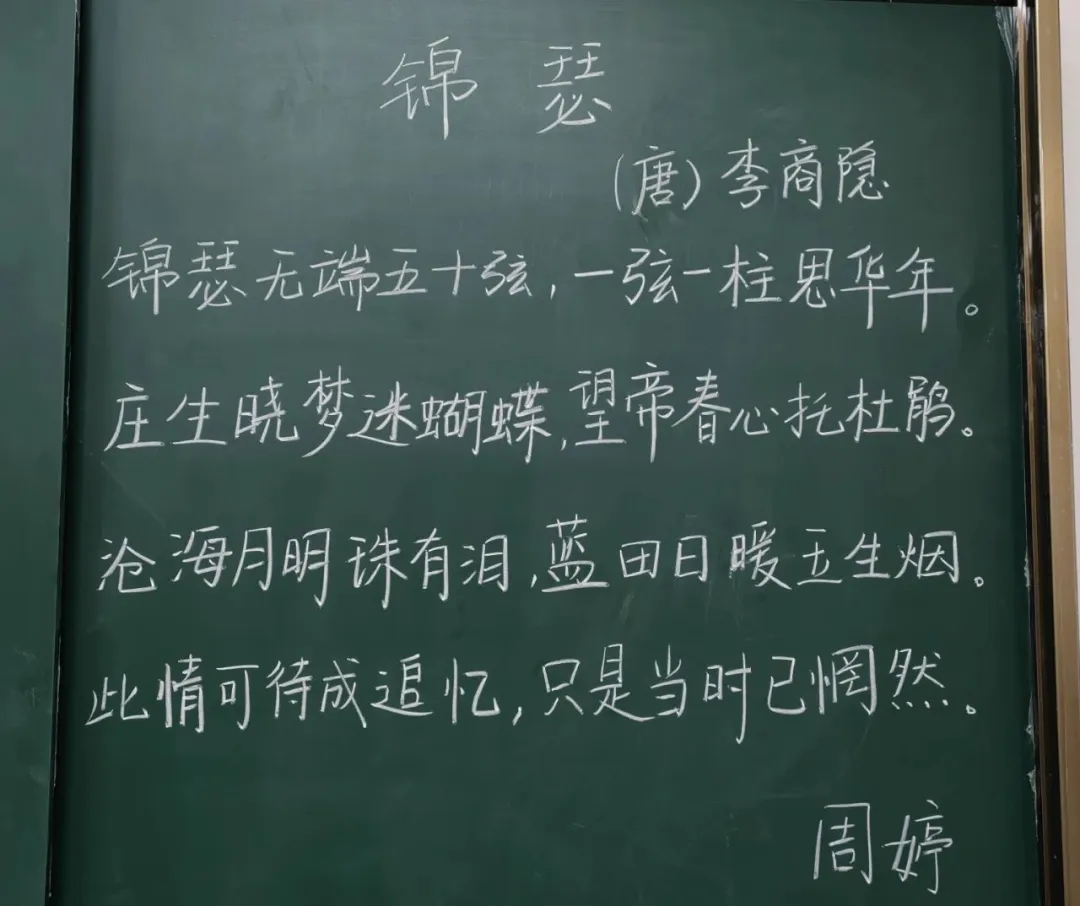 锦瑟
(唐)李商隐
锦瑟无端五十弦,一弦一柱思华年。
庄生晓梦迷蝴蝶,望帝春心托杜鹃。
沧海月明珠有泪,蓝田日暖玉生烟。
此情可待成追忆,只是当时已惘然。
周婷